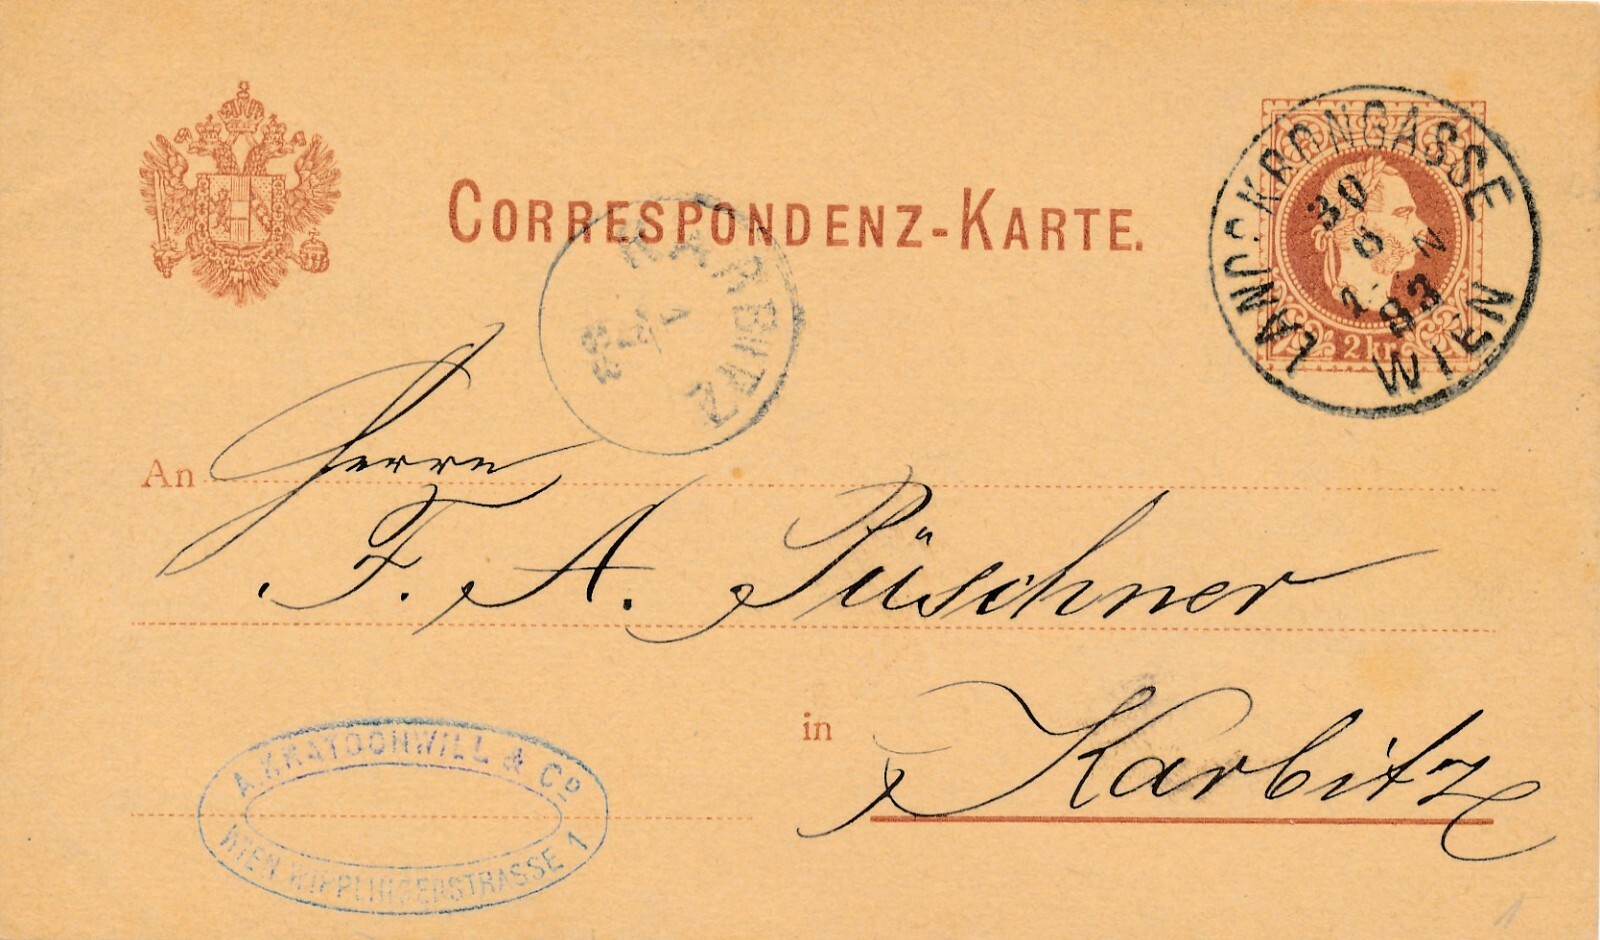 CORRESPONDENZ-KARTE.
LANDSKRONGASSE
30
8
83
WIEN
2 kr.
KARBITZ
83
An Herrn
F. A. Püschner
in Karbitz
A. KRATOCHWILL & Co
WIEN WIPPLINGERSTRASSE 1